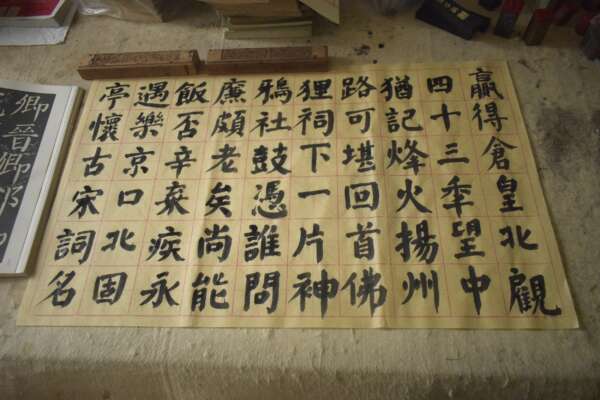 贏得倉皇北觀
四十三秊望中
猶記烽火揚州
路可堪回首佛
狸祠下一片神
鴉社鼓憑誰問
廉頗老矣尚能
飯否辛棄疾永
遇樂京口北固
亭懷古宋詞名
卿晉卿